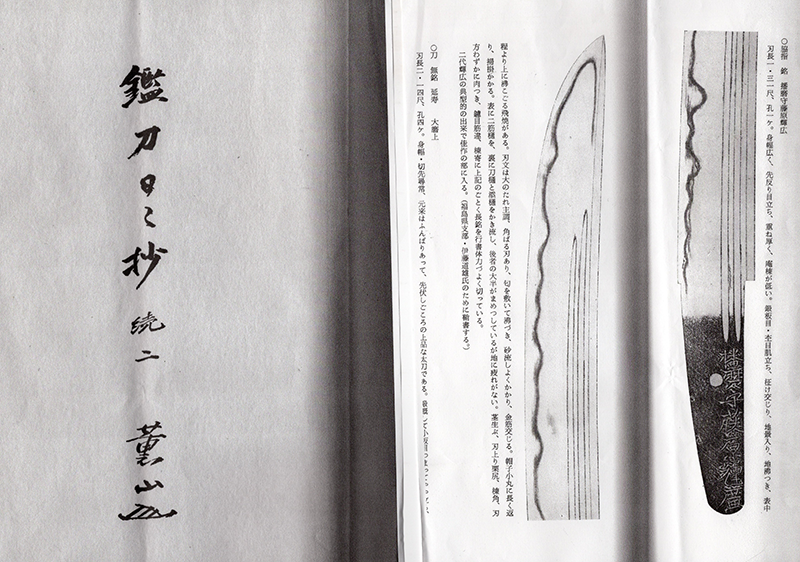 鑑刀日々抄 続二 薫山
○脇指 銘 播磨守藤原輝広
刃長一・三一尺、孔一ケ。身幅広く、先反り目立ち、重ね厚く、庵棟が低い。鍛板目・杢目肌立ち、柾け交じり、地景入り、地沸つき、表中
程より上に沸こごる飛焼がある。刃文は大のたれ主調、角ばる刃あり、匂を敷いて沸づき、砂流しよくかかり、金筋交じる。帽子小丸に長く返
り、掃掛かかる。表に二筋樋を、裏に刀樋と添樋をかき流し、後者の大半がまめつしているが地に疲れがない。茎生ぶ、刃上り栗尻、棟角、刃
方わずかに肉つき、鑢目筋違、棟寄に上記のごとく長銘を行書体力づよく切っている。
二代輝広の典型的の出来で佳作の部に入る。(福島県支部・伊藤道雄氏のために鞘書する。)
○刀 無銘 延寿 大磨上
刃長二・一四尺、孔四ケ。身幅・切先尋常、元来はふんばりあって、先伏しごころの上品な太刀である。
播磨守藤原輝広